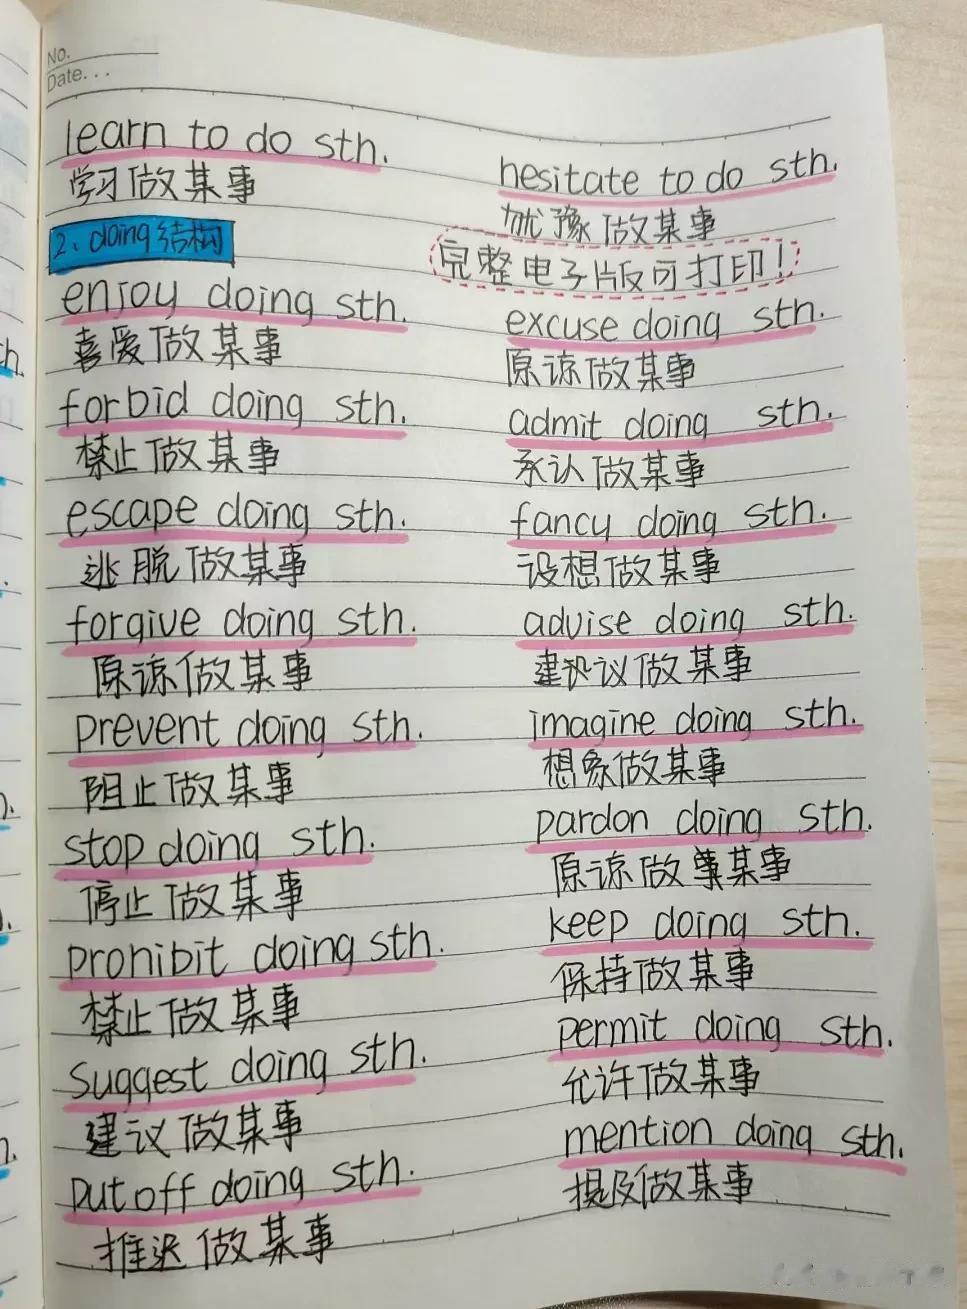 No.
Date...
learn to do sth.
学习做某事
2、doing结构
enjoy doing sth.
喜爱做某事
forbid doing sth.
禁止做某事
escape doing sth.
逃脱做某事
forgive doing sth.
原谅做某事
prevent doing sth.
阻止做某事
stop doing sth.
停止做某事
prohibit doing sth.
禁止做某事
suggest doing sth.
建议做某事
put off doing sth.
推迟做某事
hesitate to do sth.
犹豫做某事
完整电子版可打印!
excuse doing sth.
原谅做某事
admit doing sth.
承认做某事
fancy doing sth.
设想做某事
advise doing sth.
建议做某事
imagine doing sth.
想象做某事
pardon doing sth.
原谅做某事
keep doing sth.
保持做某事
permit doing sth.
允许做某事
mention doing sth.
提及做某事